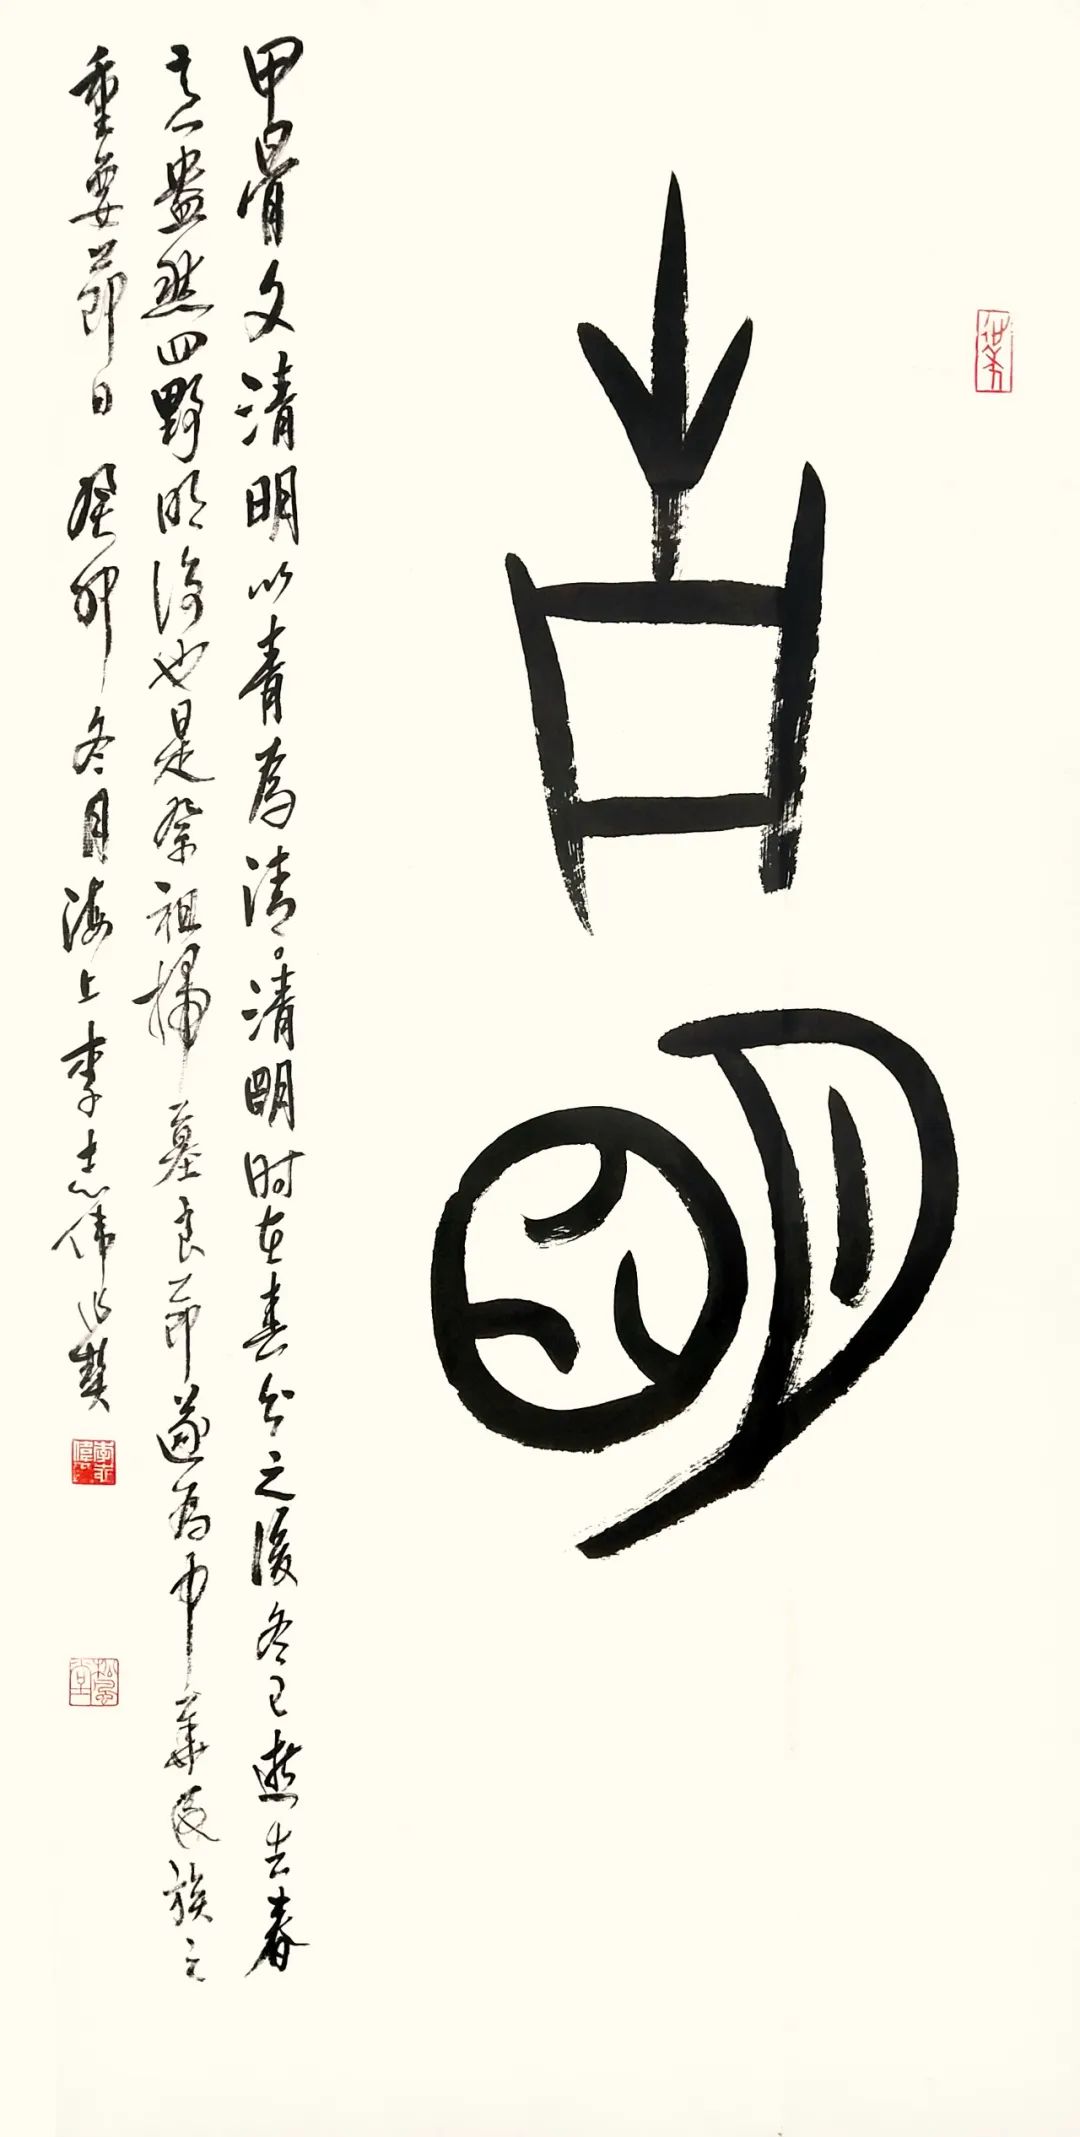 青
明
甲骨文清明以青為清。清朙时在春分之後冬已逝去春
意盎然四野明淨也是祭祖掃墓良節遂為中華民族之
重要節日 癸卯冬月海上李志偉
李志偉